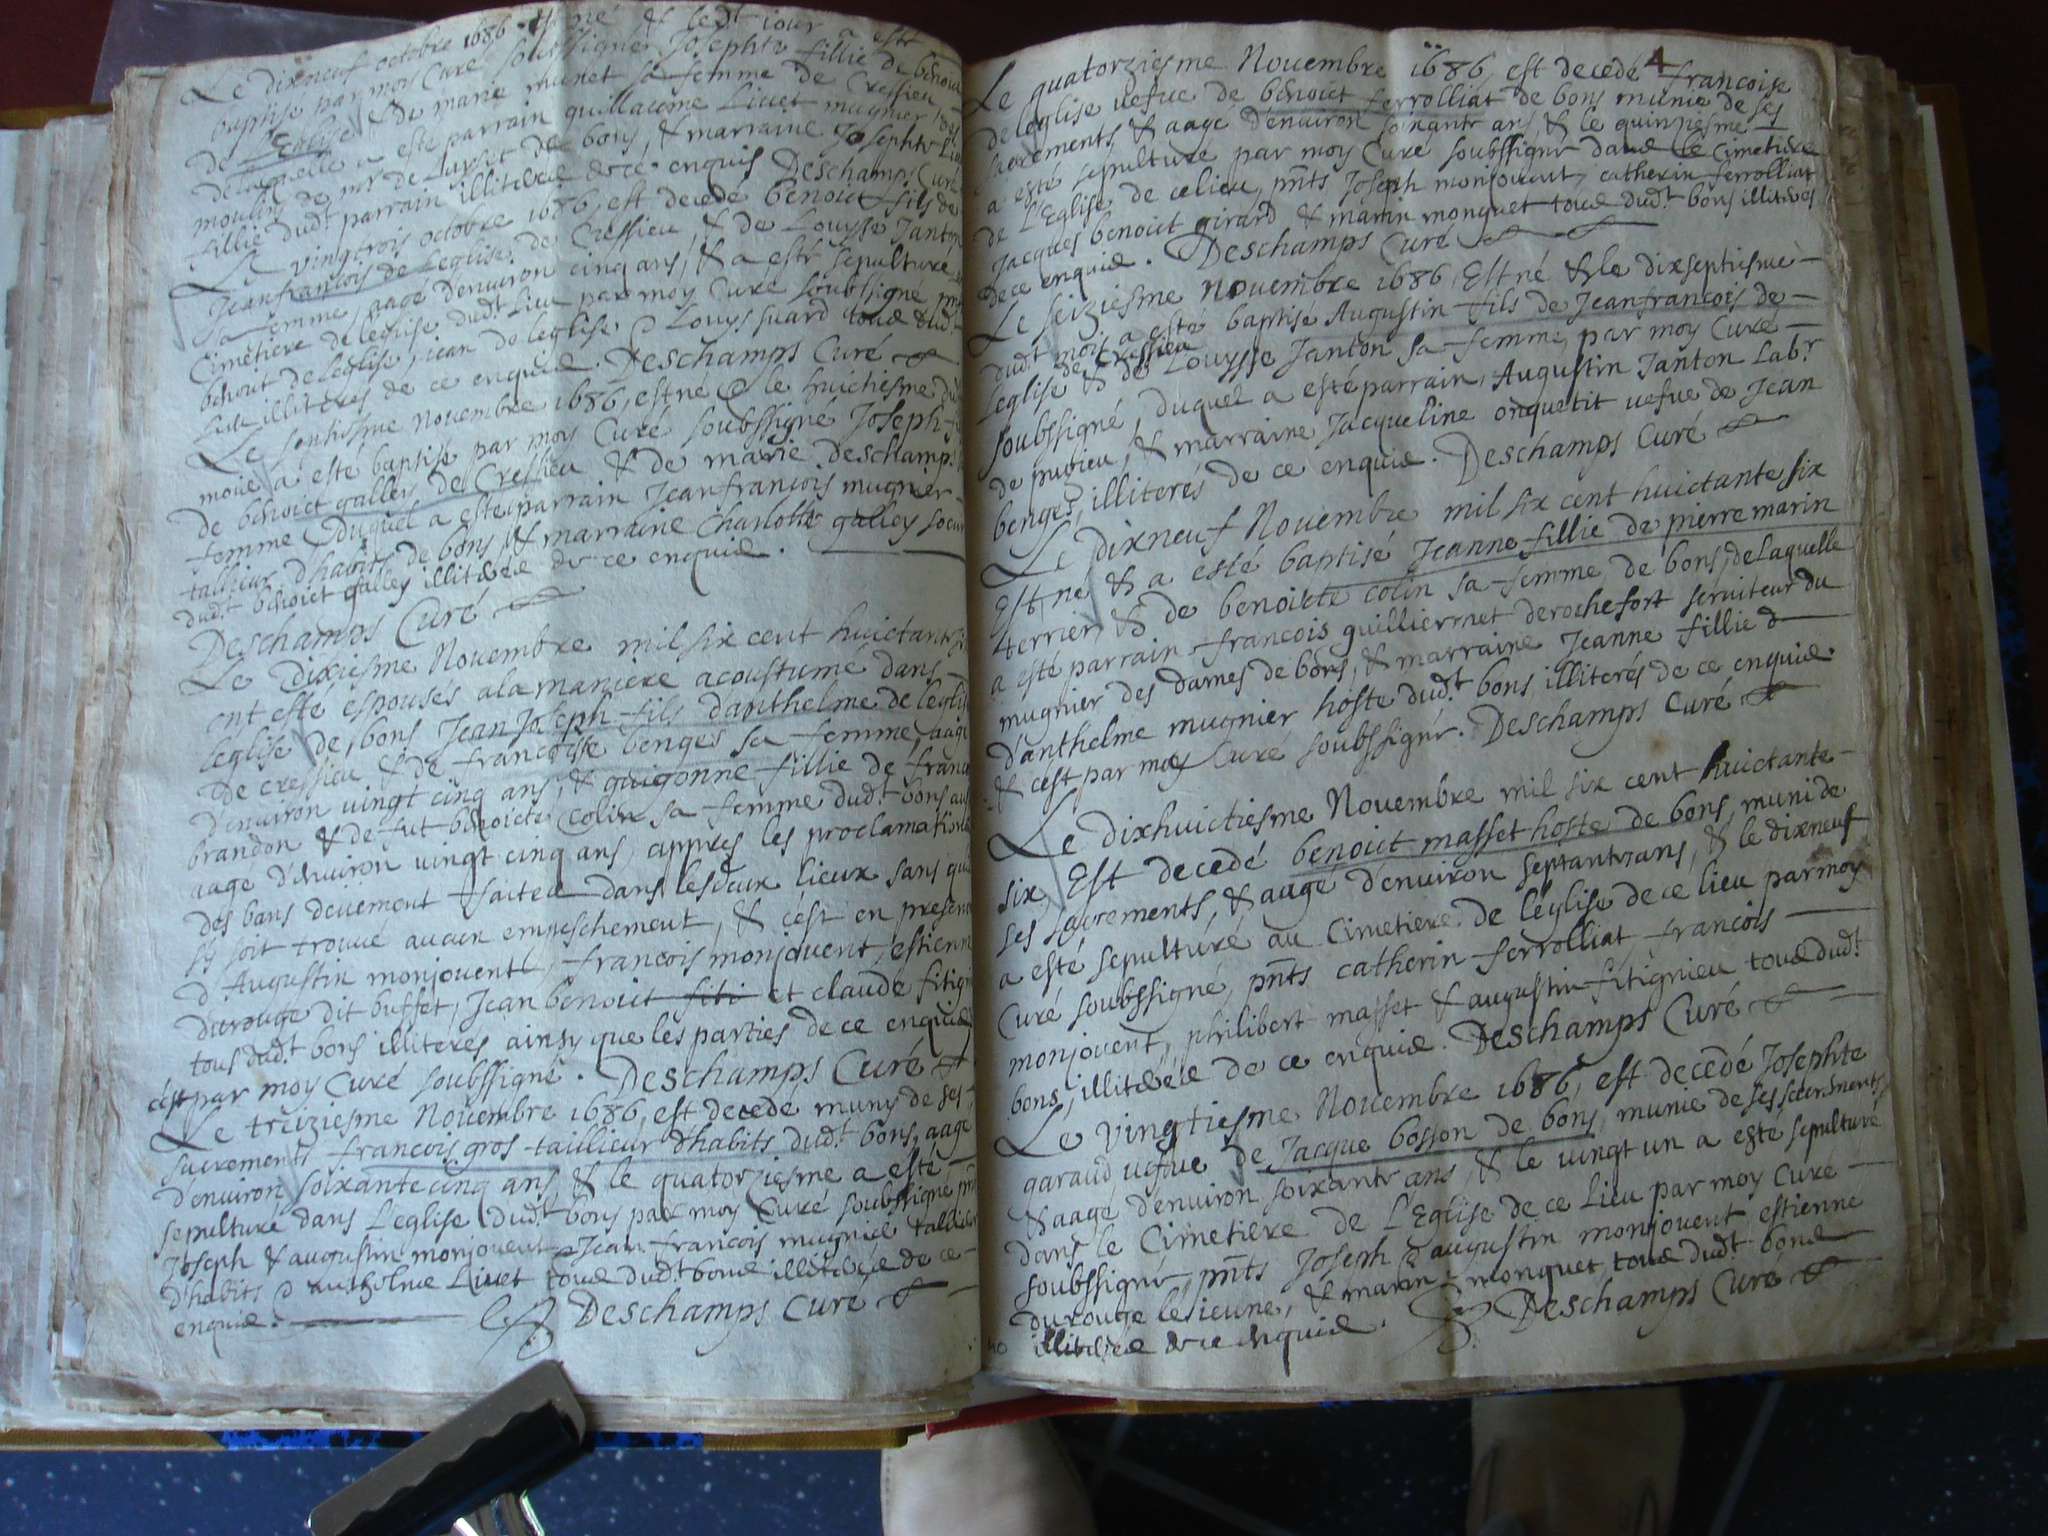 Le dixneuf octobre 1686 est né & led.t iour a esté
baptisé par moy Curé soubssigné Josephte fillie de benoict
de L'Eglise & de marie munet sa femme de Cressieu
de laquelle a esté parrain guillaome Liuet mugnier des
moulins de mr de Luyset de bons, & marraine Josephte
fillie dud.t parrain illiteres de ce enquis Deschamps Curé
Le vingtrois octobre 1686, est decedé benoict fils de
Jeanfrancois de Leglise de Cressieu & de Louyse Janton
sa femme, aagé denuiron cinq ans, & a esté sepulturé
Cimetiere de leglise dud.t Lieu par moy Curé soubssigné pnts
benoit de Leglise, iean de leglise & Louys suard tous dud.t
Lieu illiteres de ce enquis. Deschamps Curé
Le septiesme Nouembre 1686, est né & le huictiesme du
mois a esté baptisé par moy Curé soubssigné Joseph
de benoict galley de Cressieu & de marie deschamps
femme, Duquel a esté parrain Jeanfrancois mugnier
tallieur d'habits de bons, & marraine Charlotte galley soeur
dud.t benoict galley illiteres de ce enquis.
Deschamps Curé
Le dixiesme Nouembre mil six cent huictantesix
ont esté espousés a la maniere acoustumé dans
leglise de bons Jean Joseph fils d'anthelme de leglise
de cressieu & de francoise benges sa femme, aagé
d'enuiron vingt cinq ans, & guigonne fillie de francois
brandon & de fut benoicte Colin sa femme dud.t bons aussi
aagé d'enuiron vingt cinq ans, appres les proclamations
des bans deüement faites dans lesdeux lieux sans qu'il
sy soit trouué aucun empeschement, & c'est en presence
d'Augustin monjouent, francois monjouent, estienne
durouge dit buffet, Jean benoict fiti et claude fitigni
tous dud.t bons illiterés ainsy que les parties de ce enquis
c'est par moy Curé soubssigné. Deschamps Curé
Le treiziesme Nouembre 1686, est decedé muny de ses
sacrements francois gros taillieur d'habits dud.t bons, aagé
d'enuiron soixante cinq ans & le quatorziesme a esté
sepulturé dans Leglise dud.t bons par moy Curé soubssigné pnts
Joseph & augustin monjouent, Jean francois mugnier tallieur
d'habits & anthelme Liuet tous dud.t bons illiterés de ce
enquis. Deschamps Curé
4
Le quatorziesme Nouembre 1686, est decedé francoise
de leglise uefue de benoict ferrolliat de bons munie de ses
sacrements & aagé d'enuiron soixante ans, & le quinziesme
a esté sepulturé par moy Curé soubssigné dans le Cimetiere
de L'Eglise de celieu, pnts Joseph monjouent, catherin ferrolliat
Jacques benoict girard & marin monquet tous dud.t bons illiteres
de ce enquis. Deschamps Curé
Le seiziesme Nouembre 1686, Est né & le dixseptiesme
dud.t mois a esté baptisé Augustin fils de Jeanfrancois de
de Cressieu
Leglise & de Louysse Janton sa femme, par moy Curé
soubssigné, duquel a esté parrain, Augustin Janton Lab.r
de pugieu, & marraine Jacqueline onquetit uefue de Jean
benges, illiterés de ce enquis. Deschamps Curé
Le dixneuf Nouembre mil six cent huictante six
Est né & a esté baptisé Jeanne fillie de pierre marin
terrier & de benoicte colin sa femme de bons, de Laquelle
a esté parrain francois guilliermet de rochefort seruiteur du
mugnier des dames de bons, & marraine Jeanne fillie d
d'anthelme mugnier hoste dud.t bons illiterés de ce enquis.
& c'est par moy Curé soubssigné. Deschamps Curé
Le dixhuictiesme Nouembre mil six cent huictante
six, Est decedé benoict masset hoste de bons, muni de
ses sacrements, & aagé d'enuiron septante ans, & le dixneuf
a esté sepulturé au Cimetiere de L'eglise de ce lieu par moy
Curé soubssigné, pnts catherin ferrolliat francois
monjouent, philibert masset & augustin fitignieu tous dud.t
bons, illiteres de ce enquis. Deschamps Curé
Le vingtiesme Nouembre 1686, est decedé Josephte
garaud uefue de Jacque bosson de bons, munie de ses sacrements
& aagé d'enuiron soixante ans, & le vingt un a esté sepulturé
dans le Cimetiere de L'Eglise de ce Lieu par moy Curé
soubssigné, pnts Joseph & augustin monjouent, estienne
durouge le ieune, & marin monquet tous dud.t bons
illiteres de ce enquis. Deschamps Curé